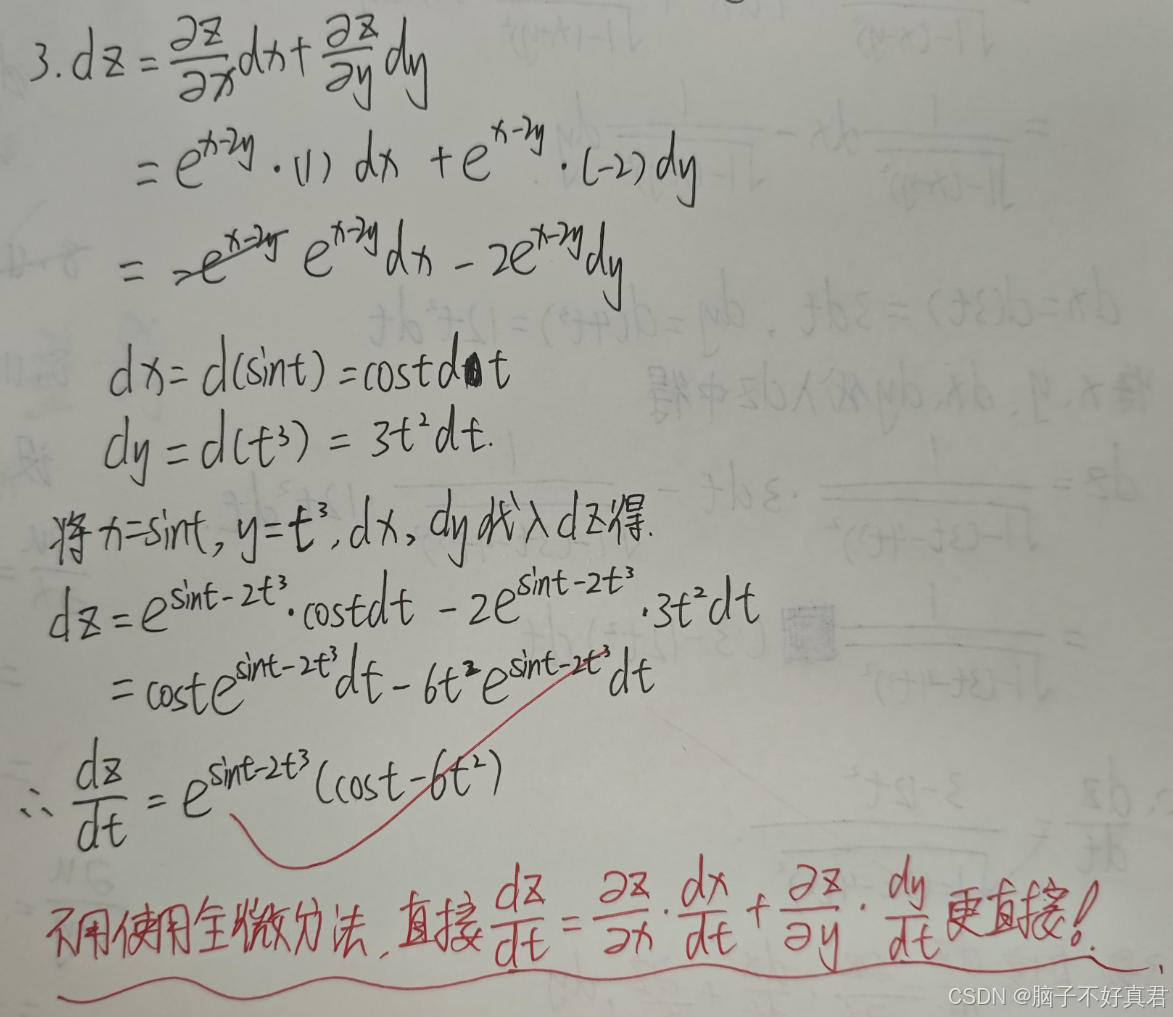 3. dz = ∂z/∂x dx + ∂z/∂y dy
= e^(x-2y) · (1) dx + e^(x-2y) · (-2) dy
= e^(x-2y) dx - 2e^(x-2y) dy
dx = d(sint) = cost dt
dy = d(t³) = 3t²dt.
将x=sint, y=t³, dx, dy代入dz得.
dz = e^(sint-2t³) · cost dt - 2e^(sint-2t³) · 3t²dt
= cost e^(sint-2t³) dt - 6t² e^(sint-2t³) dt
∴ dz/dt = e^(sint-2t³) (cost-6t²)
不用使用全微分法, 直接 dz/dt = ∂z/∂x · dx/dt + ∂z/∂y · dy/dt 更直接!
CSDN @脑子不好真君